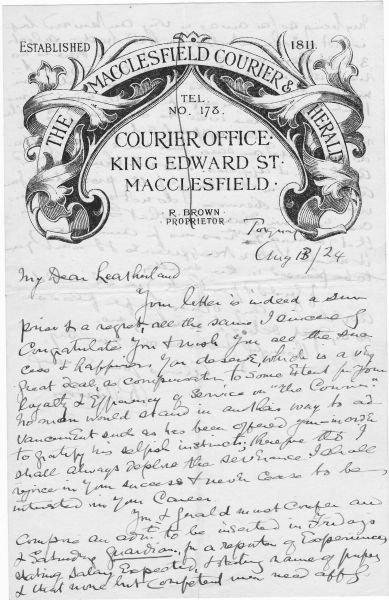 ESTABLISHED 1811.
THE MACCLESFIELD COURIER & HERALD
TEL.
NO. 178.
COURIER OFFICE.
KING EDWARD ST.
MACCLESFIELD.
R. BROWN
PROPRIETOR
Torquay
Aug 18/24
My Dear Leatherland
Your letter is indeed a sur
prise & a regret, all the same, I sincerely
Congratulate you & wish you all the suc
cess & happiness you deserve, which is a very
Great deal, as compensation to some Extent for your
loyalty & Efficiency of Service on "The Courier"
no man would stand in another's way to ad
vancement such as has been offered you in order
to gratify his selfish instincts, therefore tho I
shall always deplore the severance I shall
rejoice in your success & never cease to be
interested in your Career.
You & Gerald must confer and
Compose an advt. to be inserted in Fridays
& Saturday Guardian, for a reporter of Experience,
stating salary Expected, & stating name of paper
& that none but competent men need apply